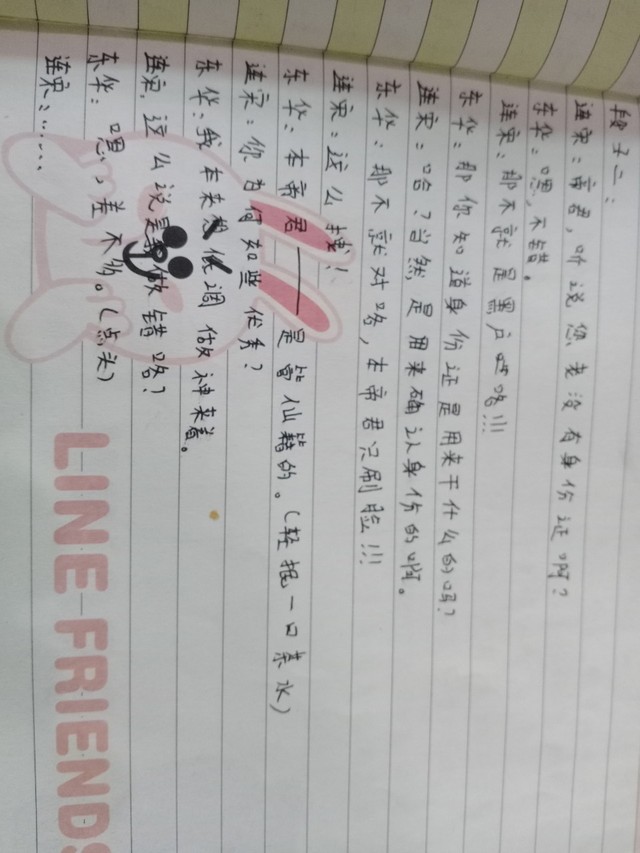 段子二:
连宋:帝君,听说您老没有身份证啊?
东华:嗯,不错。
连宋:那不就是黑户吧咯!!!
东华:那你知道身份证是用来干什么的吗?
连宋:哈?当然是用来确认身份的啊。
东华:那不就对咯,本帝君只刷脸!!!
连宋:这么拽!
东华:本帝君——是管仙籍的。(轻抿一口茶水)
连宋:你为何如些优秀?
东华:我本来想低调做神来着。
连宋:这么说是我做错咯?
东华:嗯,差不多。(点头)
连宋:……
LINE FRIENDS